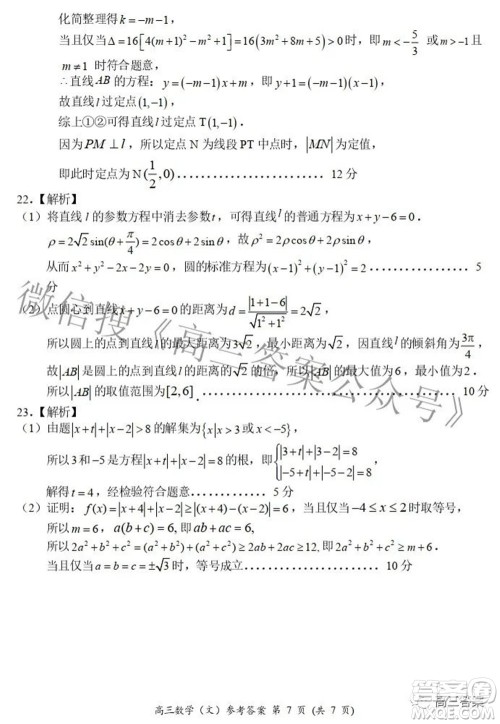 化简整理得k=−m−1,
当且仅当Δ=16[4(m+1)²−m²+1]=16(3m²+8m+5)>0时，即m<−5/3 或m>−1且
m≠1 时符合题意，
∴直线AB的方程：y=(−m−1)x+m，即y+1=(−m−1)(x−1)，
故直线l过定点(1,−1)，
综上①②可得直线l过定点T(1,−1).
因为PM⊥l，所以定点N为线段PT中点时，|MN|为定值，
即此时定点为N(1/2,0)．．．．．．．．．．．．12分
22.【解析】
（1）将直线l的参数方程中消去参数t，可得直线l的普通方程为x+y−6=0．
ρ=2√2sin(θ+π/4)=2cosθ+2sinθ，故ρ²=2ρcosθ+2ρsinθ，
从而x²+y²−2x−2y=0，圆的标准方程为(x−1)²+(y−1)²=2．．．．．．．．．．．．．．．．．5
分
（2）点圆心到直线x+y−6=0的距离为d=|1+1−6|/√(1²+1²)=2√2，
所以圆上的点到直线l的最大距离为3√2，最小距离为√2，因直线l的倾斜角为3π/4，
故|AB|是圆上的点到直线l距离的√2倍，所以|AB|的最大值为6，最小值为2.
所以|AB|的取值范围为[2,6]．．．．．．．．．．．．．．．．．．．．．．．．．．．．10分
23.【解析】
（1）由题|x+t|+|x−2|>8的解集为{x|x>3或x<−5}，
所以3和−5是方程|x+t|+|x−2|=8的根，即{|3+t|+|3−2|=8
|−5+t|+|−5−2|=8，
解得t=4，经检验符合题意．．．．．．．．5分
（2）证明：f(x)=|x+4|+|x−2|≥|(x+4)−(x−2)|=6，当且仅当−4≤x≤2时取等号，
所以m=6，a(b+c)=6,即ab+ac=6，
所以2a²+b²+c²=(a²+b²)+(a²+c²)≥2ab+2ac≥12,即2a²+b²+c²≥m+6．
当且仅当a=b=c=±√3时，等号成立．．．．．．．．．．．．．．．．．10分
微信搜《高三答案公众号》
高三数学（文）参考答案 第 7 页（共 7 页）
高三答案